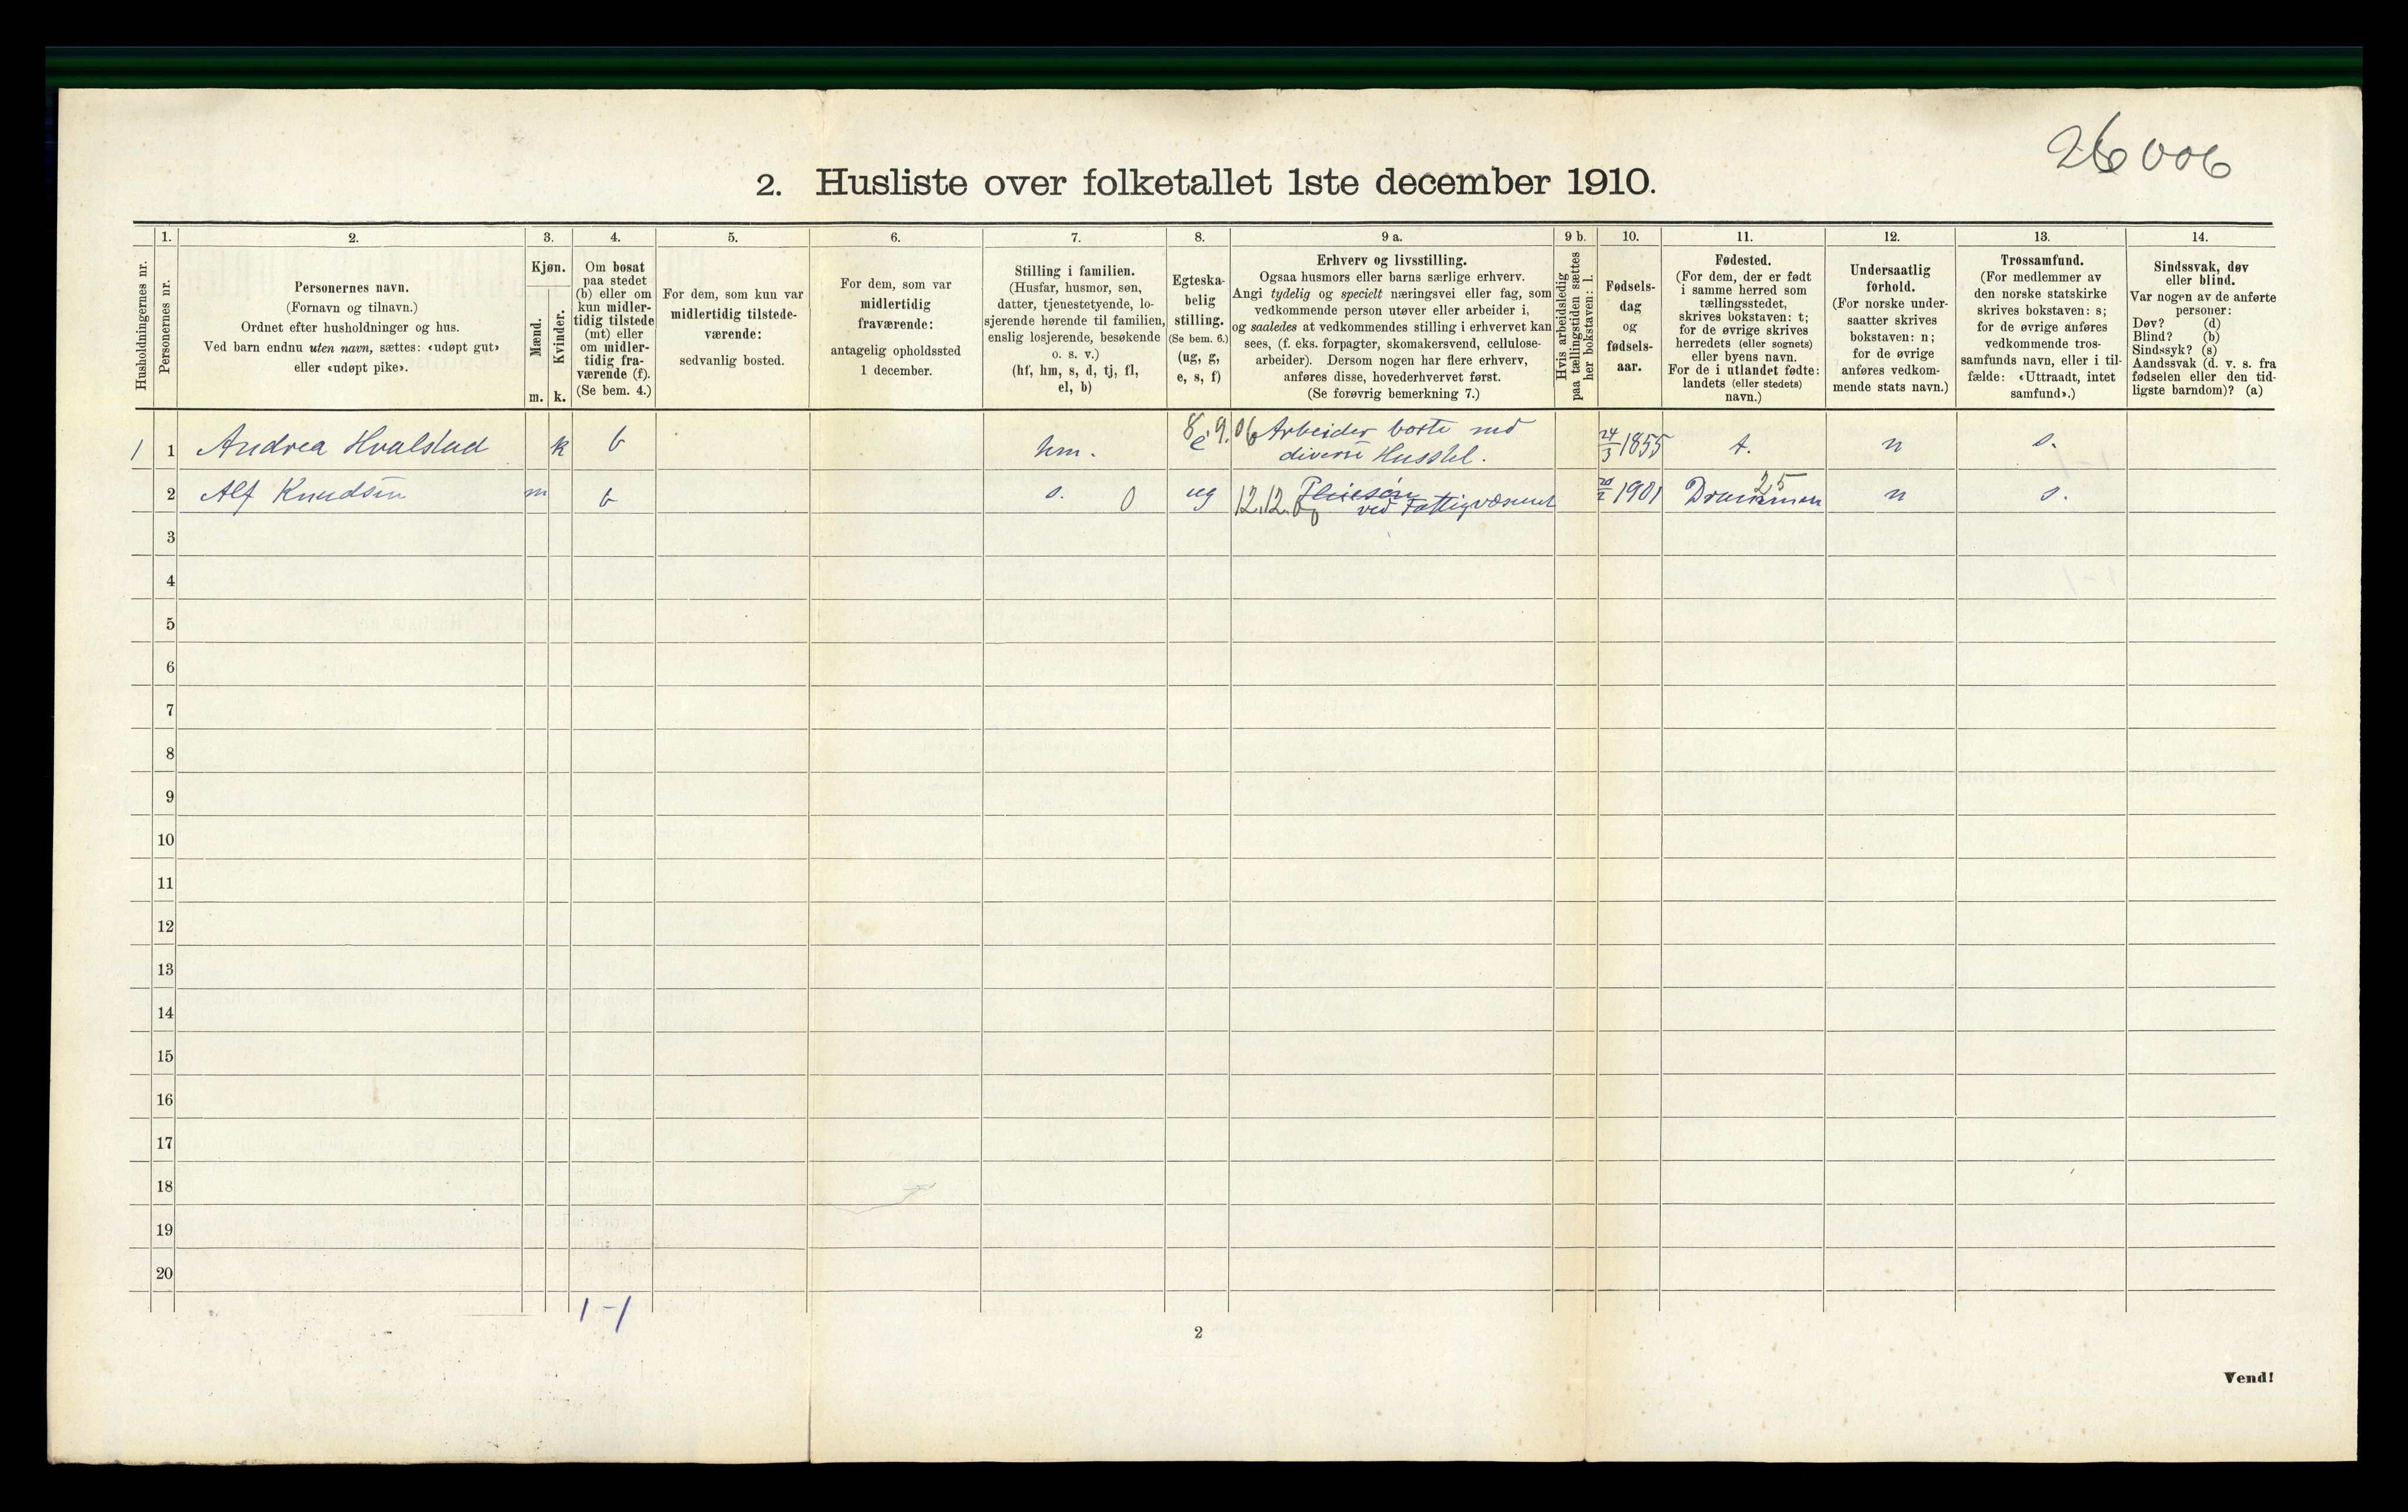 26006
2. Husliste over folketallet 1ste december 1910.
Husholdningernes nr.
1.
Personernes nr.
2.
Personernes navn.
(Fornavn og tilnavn.)
Ordnet efter husholdninger og hus.
Ved barn endnu uten navn, sættes: «udøpt gut»
eller «udøpt pike».
3.
Kjøn.
Mænd.
Kvinder.
m. k.
4.
Om bosat
paa stedet
(b) eller om
kun midler-
tidig tilstede
(mt) eller
om midler-
tidig fra-
værende (f).
(Se bem. 4.)
5.
For dem, som kun var
midlertidig tilstede-
værende:
sedvanlig bosted.
6.
For dem, som var
midlertidig
fraværende:
antagelig opholdssted
1 december.
7.
Stilling i familien.
(Husfar, husmor, søn,
datter, tjenestetyende, lo-
sjerende hørende til familien,
enslig losjerende, besøkende
o. s. v.)
(hf, hm, s, d, tj, fl,
el, b)
8.
Egteska-
belig
stilling.
(Se bem. 6.)
(ug, g,
e, s, f)
9 a.
Erhverv og livsstilling.
Ogsaa husmors eller barns særlige erhverv.
Angi tydelig og specielt næringsvei eller fag, som
vedkommende person utøver eller arbeider i,
og saaledes at vedkommendes stilling i erhvervet kan
sees, (f. eks. forpagter, skomakersvend, cellulose-
arbeider). Dersom nogen har flere erhverv,
anføres disse, hovederhvervet først.
(Se forøvrig bemerkning 7.)
9 b.
Hvis arbeidsledig
paa tællingstiden sættes
her bokstaven: l.
10.
Fødsels-
dag
og
fødsels-
aar.
11.
Fødested.
(For dem, der er født
i samme herred som
tællingsstedet,
skrives bokstaven: t;
for de øvrige skrives
herredets (eller sognets)
eller byens navn.
For de i utlandet fødte:
landets (eller stedets)
navn.)
12.
Undersaatlig
forhold.
(For norske under-
saatter skrives
bokstaven: n;
for de øvrige
anføres vedkom-
mende stats navn.)
13.
Trossamfund.
(For medlemmer av
den norske statskirke
skrives bokstaven: s;
for de øvrige anføres
vedkommende tros-
samfunds navn, eller i til-
fælde: «Uttraadt, intet
samfund».)
14.
Sindssvak, døv
eller blind.
Var nogen av de anførte
personer:
Døv? (d)
Blind? (b)
Sindssyk? (s)
Aandssvak (d. v. s. fra
fødselen eller den tid-
ligste barndom)? (a)
1 1 Andrea Hvalstad k b hm. e 8.9.06 Arbeider borte ved
diverse Husstel. 24/3 1855 t. n s.
2 Alf Knudsen m b s. 0 ug 12.12.
ved Fattigvæsenet 1901 Drammen 25 n s.
3
4
5
6
7
8
9
10
11
12
13
14
15
16
17
18
19
20
1 - 1
2
Vend!